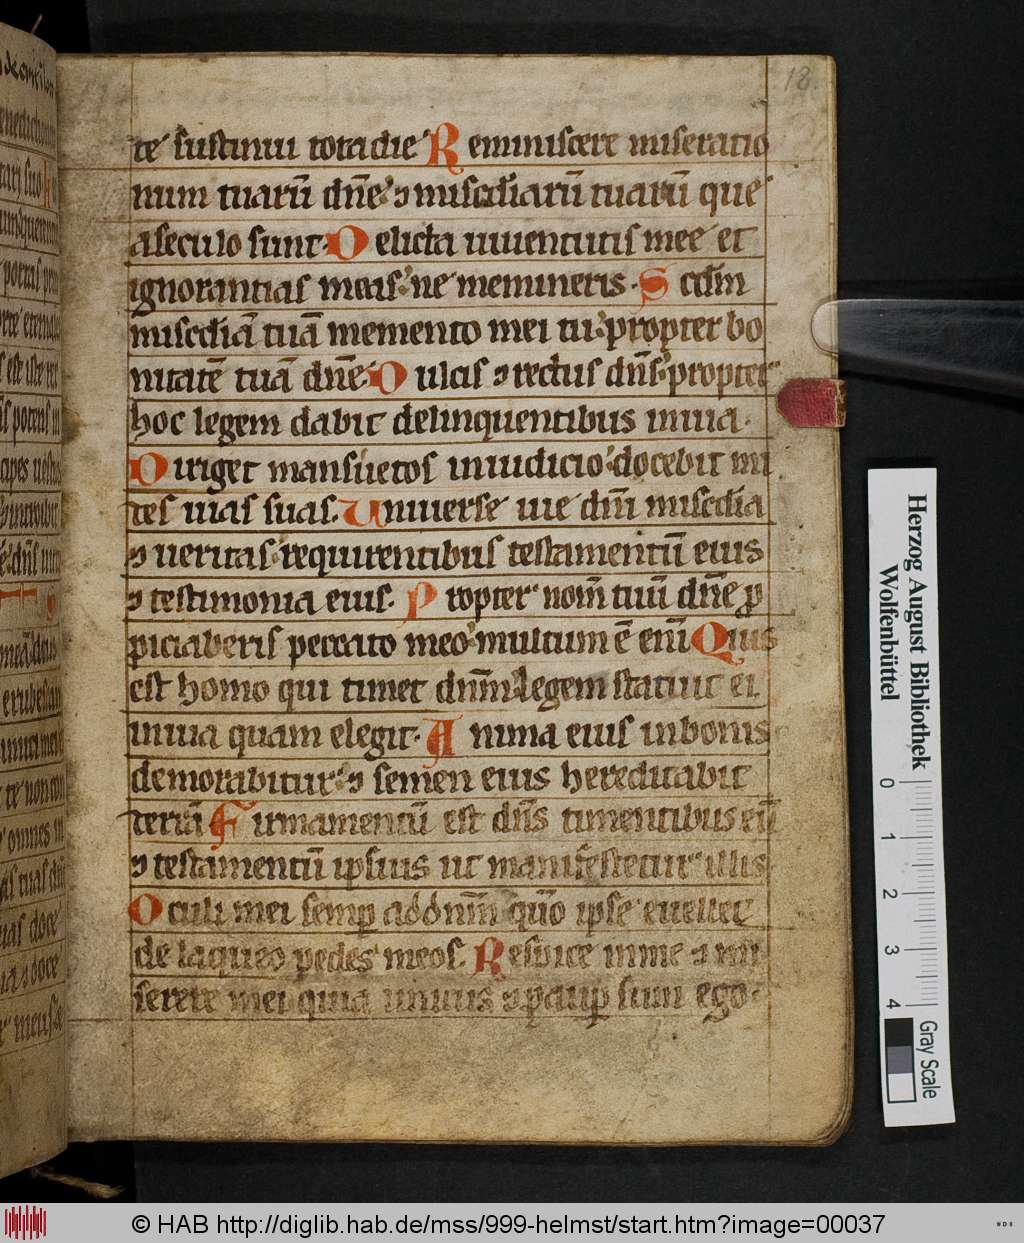 te sustinui tota die Reminiscere miseratio
num tuarū dn̄e ⁊ misc̄diarū tuarū que
aseculo sunt. Delicta iuuentutis mee et
ignorantias meas ne memineris. Scdm̄
misc̄diā tuā memento mei tu propter bo
nitatē tuā dn̄e. Dulcis ⁊ rectus dn̄s propter
hoc legem dabit delinquentibus inuia.
Diriget mansuetos iniudicio docebit mi
tes uias suas. Uniuerse uie dn̄i misc̄dia
⁊ ueritas requirentibus testamentū eius
⁊ testimonia eius. Propter nom̄ tuū dn̄e ꝓ
piciaberis peccato meo multum ē enī Quis
est homo qui timet dnm̄ legem statuit ei
inuia quam elegit. Anima eius inbonis
demorabitur ⁊ semen eius hereditabit
terrā Firmamentū est dn̄s timentibus eū
⁊ testamentū ipsius ut manifestetur illis
Oculi mei semꝑ addnm̄ qm̄o ipse euellet
de laqueo pedes meos. Respice inme ⁊ mi
serere mei quia unicus ⁊ pauꝑ sum ego.
18.
Herzog August Bibliothek
Wolfenbüttel
0 1 2 3 4
Gray Scale
© HAB http://diglib.hab.de/mss/999-helmst/start.htm?image=00037